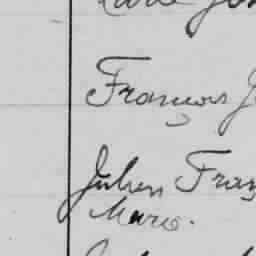 François J
Julien Fran
Marie.